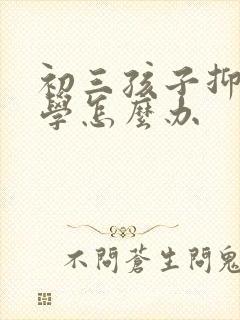 初三孩子抑
學怎麼办
不問蒼生問鬼